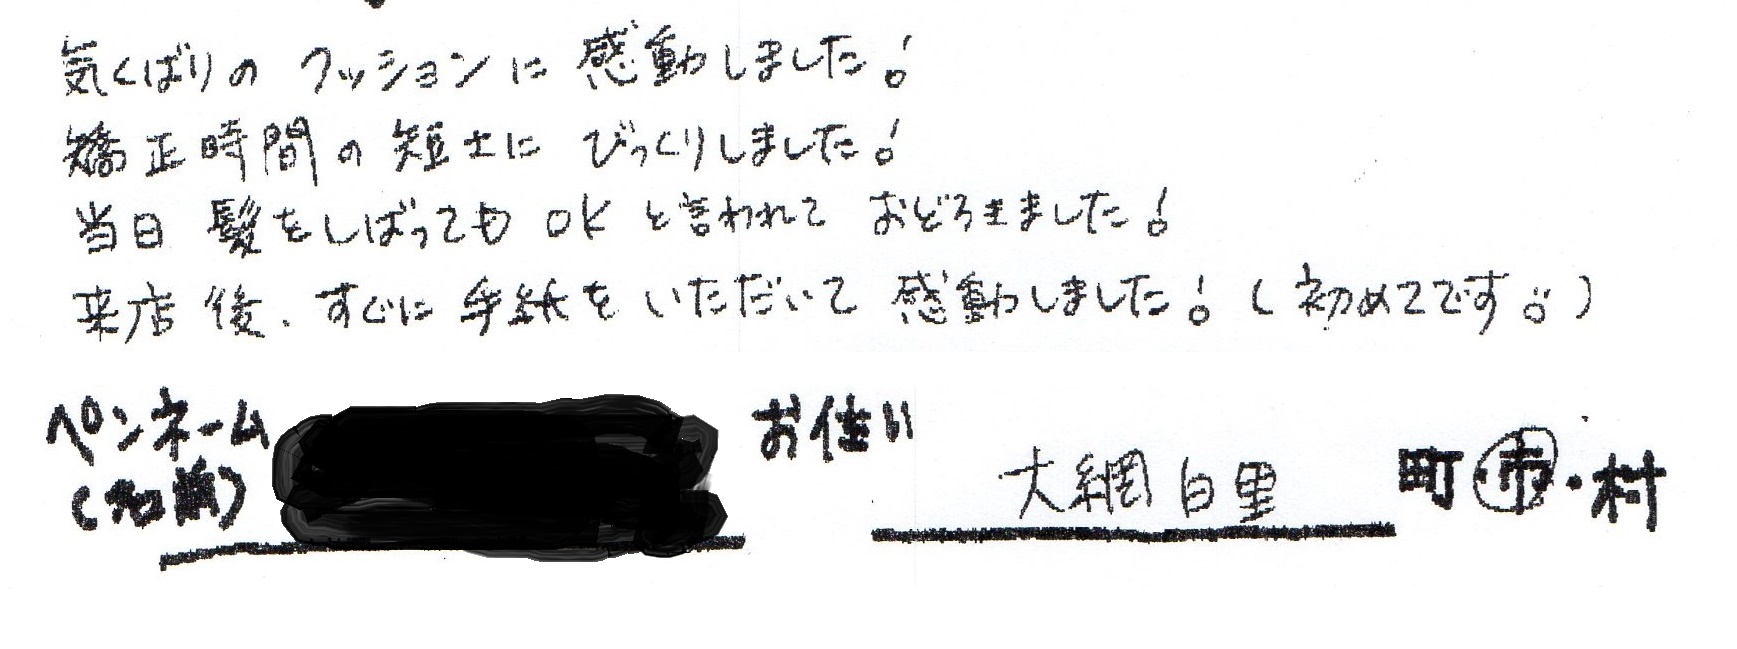 気くばりの クッションに 感動しました!
矯正時間の短士に びっくりしました!
当日 髪をしばっても OK と言われて おどろきました!
来店後、すぐに 手紙を いただいて 感動しました!(初めてです!!)
ペンネーム
(名前)
お住い 大網白里 町・市・村